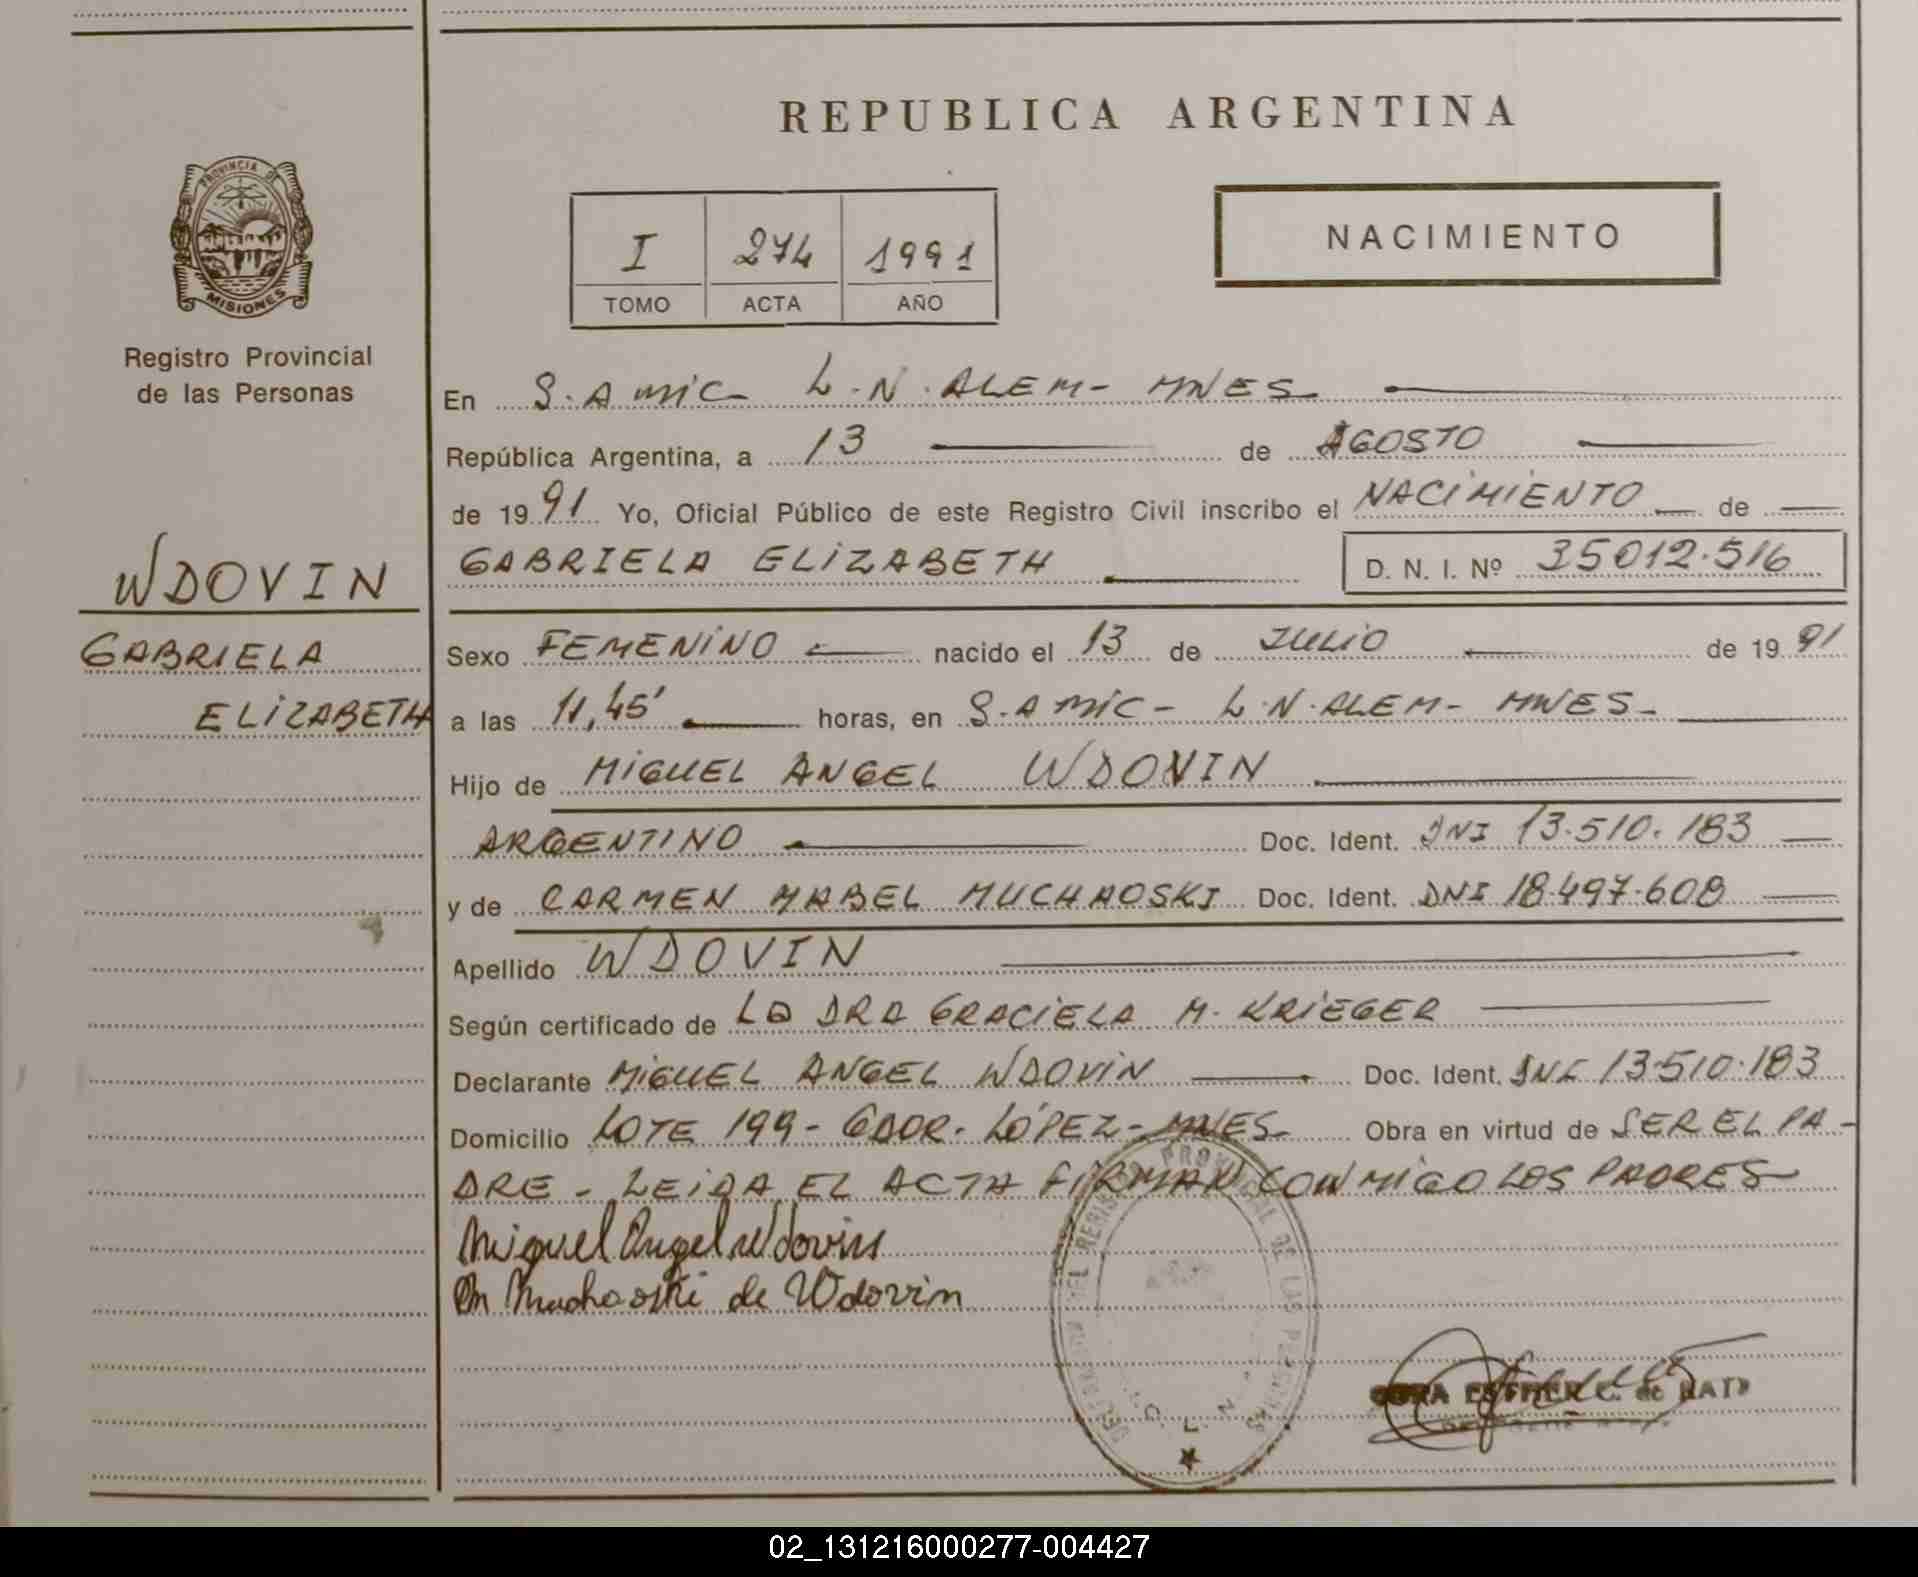 PROVINCIA DE
MISIONES
Registro Provincial
de las Personas
WDOVIN
GABRIELA
ELIZABETH
REPUBLICA ARGENTINA
I 274 1991
TOMO ACTA AÑO
NACIMIENTO
En S.A MIC L.N. ALEM- MNES
República Argentina, a 13 de AGOSTO
de 1991 Yo, Oficial Público de este Registro Civil inscribo el NACIMIENTO de
GABRIELA ELIZABETH D. N. I. Nº 35012.516
Sexo FEMENINO nacido el 13 de JULIO de 1991
a las 11,45' horas, en S.A MIC- L.N. ALEM- MNES-
Hijo de MIGUEL ANGEL WDOVIN
ARGENTINO Doc. Ident. DNI 13.510.183
y de CARMEN MABEL MUCHAOSKI Doc. Ident. DNI 18.497.608
Apellido WDOVIN
Según certificado de LA DRA GRACIELA M. KRIEGER
Declarante MIGUEL ANGEL WDOVIN Doc. Ident. DNI 13.510.183
Domicilio LOTE 199- GDOR. LÓPEZ- MNES Obra en virtud de SER EL PA-
DRE - LEIDA EL ACTA FIRMAN CONMIGO LOS PADRES
Miguel Angel Wdovin
Muchaoski de Wdovin
ESTHER C. de
02_131216000277-004427